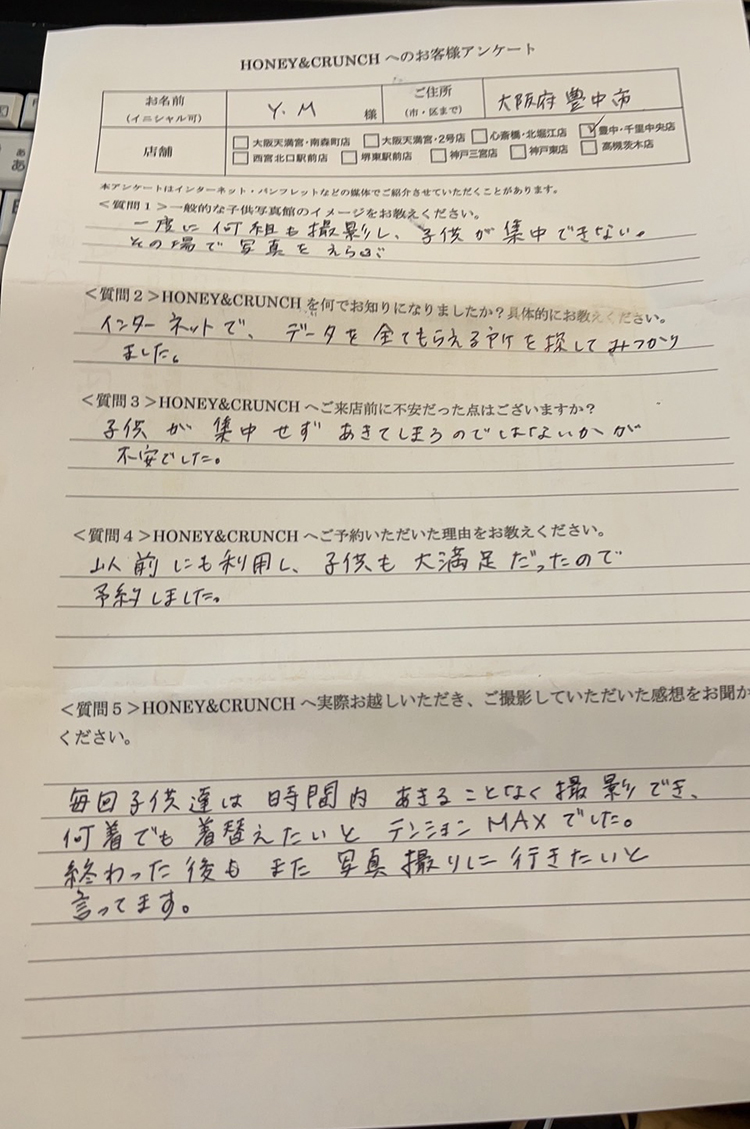 HONEY&CRUNCH へのお客様アンケート
お名前
(イニシャル可)
Y.M 様
ご住所
(市・区まで)
大阪府豊中市
店舗
大阪天満宮・南森町店 大阪天満宮・2号店 心斎橋・北堀江店 豊中・千里中央店
西宮北口駅前店 堺東駅前店 神戸三宮店 神戸東店 高槻茨木店
本アンケートはインターネット・パンフレットなどの媒体でご紹介させていただくことがあります。
<質問1>一般的な子供写真館のイメージをお教えください。
一度に何組も撮影し、子供が集中できない。
その場で写真をえらぶ
<質問2>HONEY&CRUNCH を何でお知りになりましたか?具体的にお教えください。
インターネットで、データを全てもらえる所を探してみつかり
ました。
<質問3>HONEY&CRUNCH へご来店前に不安だった点はございますか?
子供が集中せずあきてしまうのではないかが
不安でした。
<質問4>HONEY&CRUNCH へご予約いただいた理由をお教えください。
以前にも利用し、子供も大満足だったので
予約しました。
<質問5>HONEY&CRUNCH へ実際お越しいただき、ご撮影していただいた感想をお聞か
ください。
毎回子供達は時間内あきることなく撮影でき、
何着でも着替えたいとテンションMAXでした。
終わった後もまた写真撮りに行きたいと
言ってます。